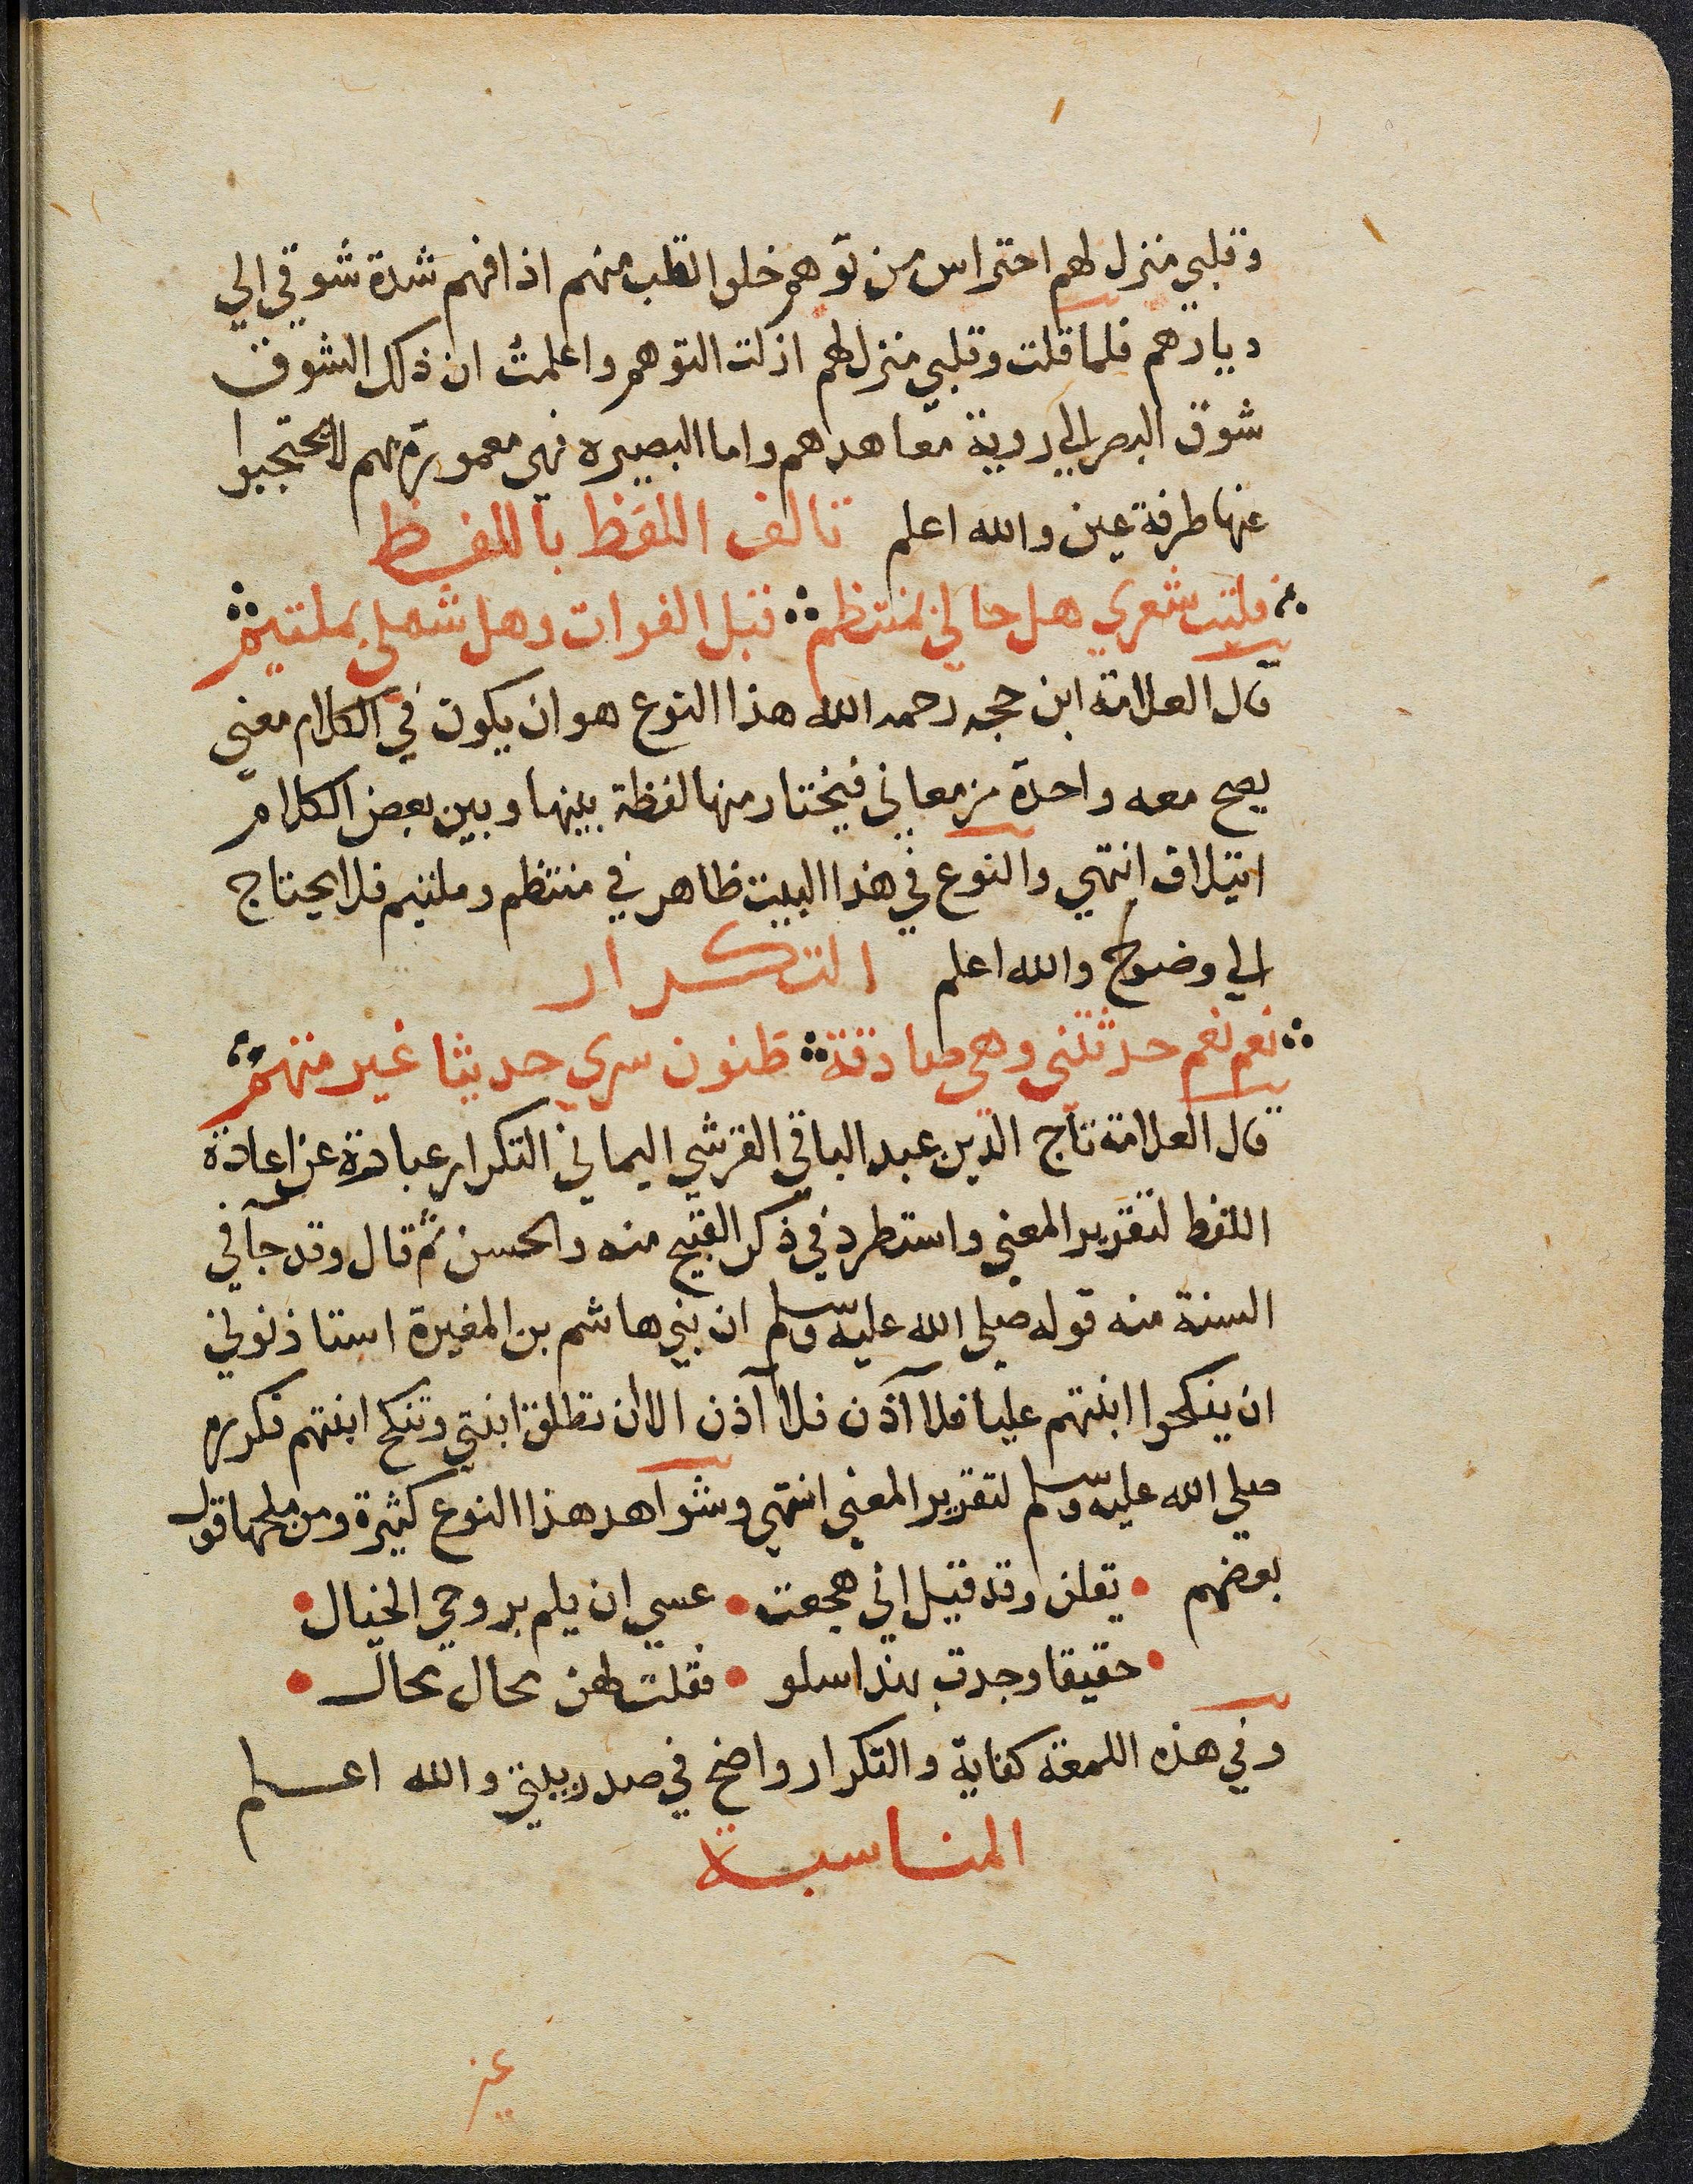 وقلبي منزل لهم احتراس من توهم خلو القلب منهم اذ افهم شدة شوقي الي
ديارهم فلما قلت وقلبي منزل لهم ازلت التوهم واعلمت ان ذلك الشوق
شوق البصر الي روية معاهدهم واما البصيره فهي معمورة بهم لا يحتجبوا
عنها طرفة عين والله اعلم تالف اللفظ باللفظ
فليت شعري هل حالي بمنتظم قبل الفوات وهل شملي بملتيم
قال العلامة ابن حجه رحمه الله هذا النوع هو ان يكون في الكلام معني
يصح معه واحدة من معاني فيختار منها لفظة بينها وبين بعض الكلام
ايتلاف انتهي والنوع في هذا البيت ظاهر في منتظم وملتيم فلا يحتاج
الي وضوح والله اعلم التكرار
نعم نعم حدثتني وهي صادقة ظنون سري حديثا غير متهم
قال العلامة تاج الدين عبد الباقي القرشي اليماني التكرار عبارة عن اعادة
اللفظ لتقرير المعني واستطرد في ذكر القبيح منه والحسن ثم قال وقد جآ في
السنة منه قوله صلي الله عليه وسلم ان بني هاشم بن المغيرة استاذنوني
ان ينكحوا ابنتهم عليا فلا آذن فلا آذن الا ان تطلق ابنتي وتنكح ابنتهم فكرره
صلي الله عليه وسلم لتقرير المعني انتهي وشواهد هذا النوع كثيرة ومن ملحها قول
بعضهم يقلن وقد قيل اني هجعت عسي ان يلم بروحي الخيال
حقيقا وجدت بندا سلو فقلت لهن محال محال
وفي هذه اللمعة كفاية والتكرار واضح في صدر بيتي والله اعلم
المناسبة